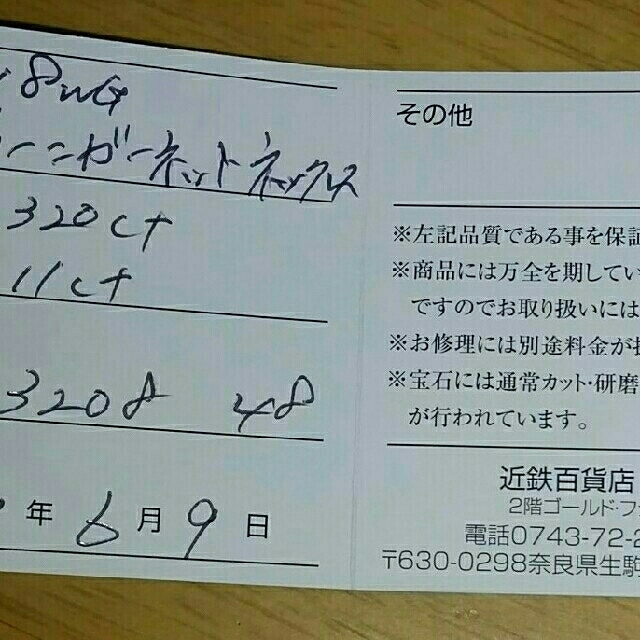 8WG
ーニガーネットネックレス
320ct
11ct
3208 48
年6月9日
その他
※左記品質である事を保証
※商品には万全を期してい
ですのでお取り扱いには
※お修理には別途料金が
※宝石には通常カット・研磨
が行われています。
近鉄百貨店
2階ゴールド・フ
電話0743-72-2
〒630-0298奈良県生駒